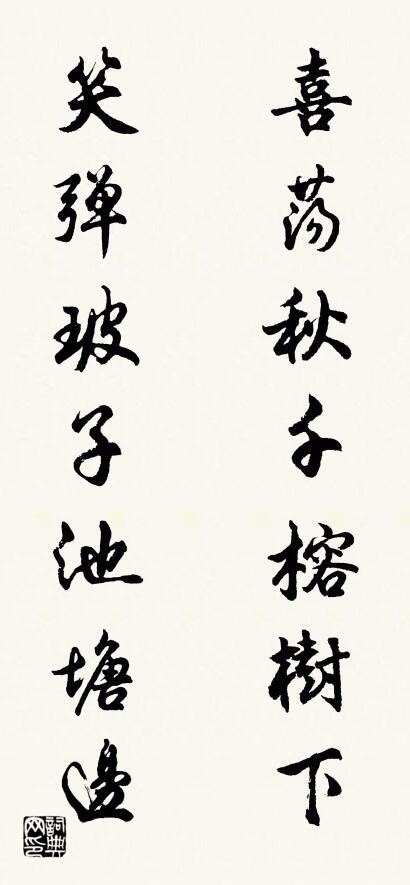 喜荡秋千榕樹下
笑弹玻子池塘邊
詞典网印